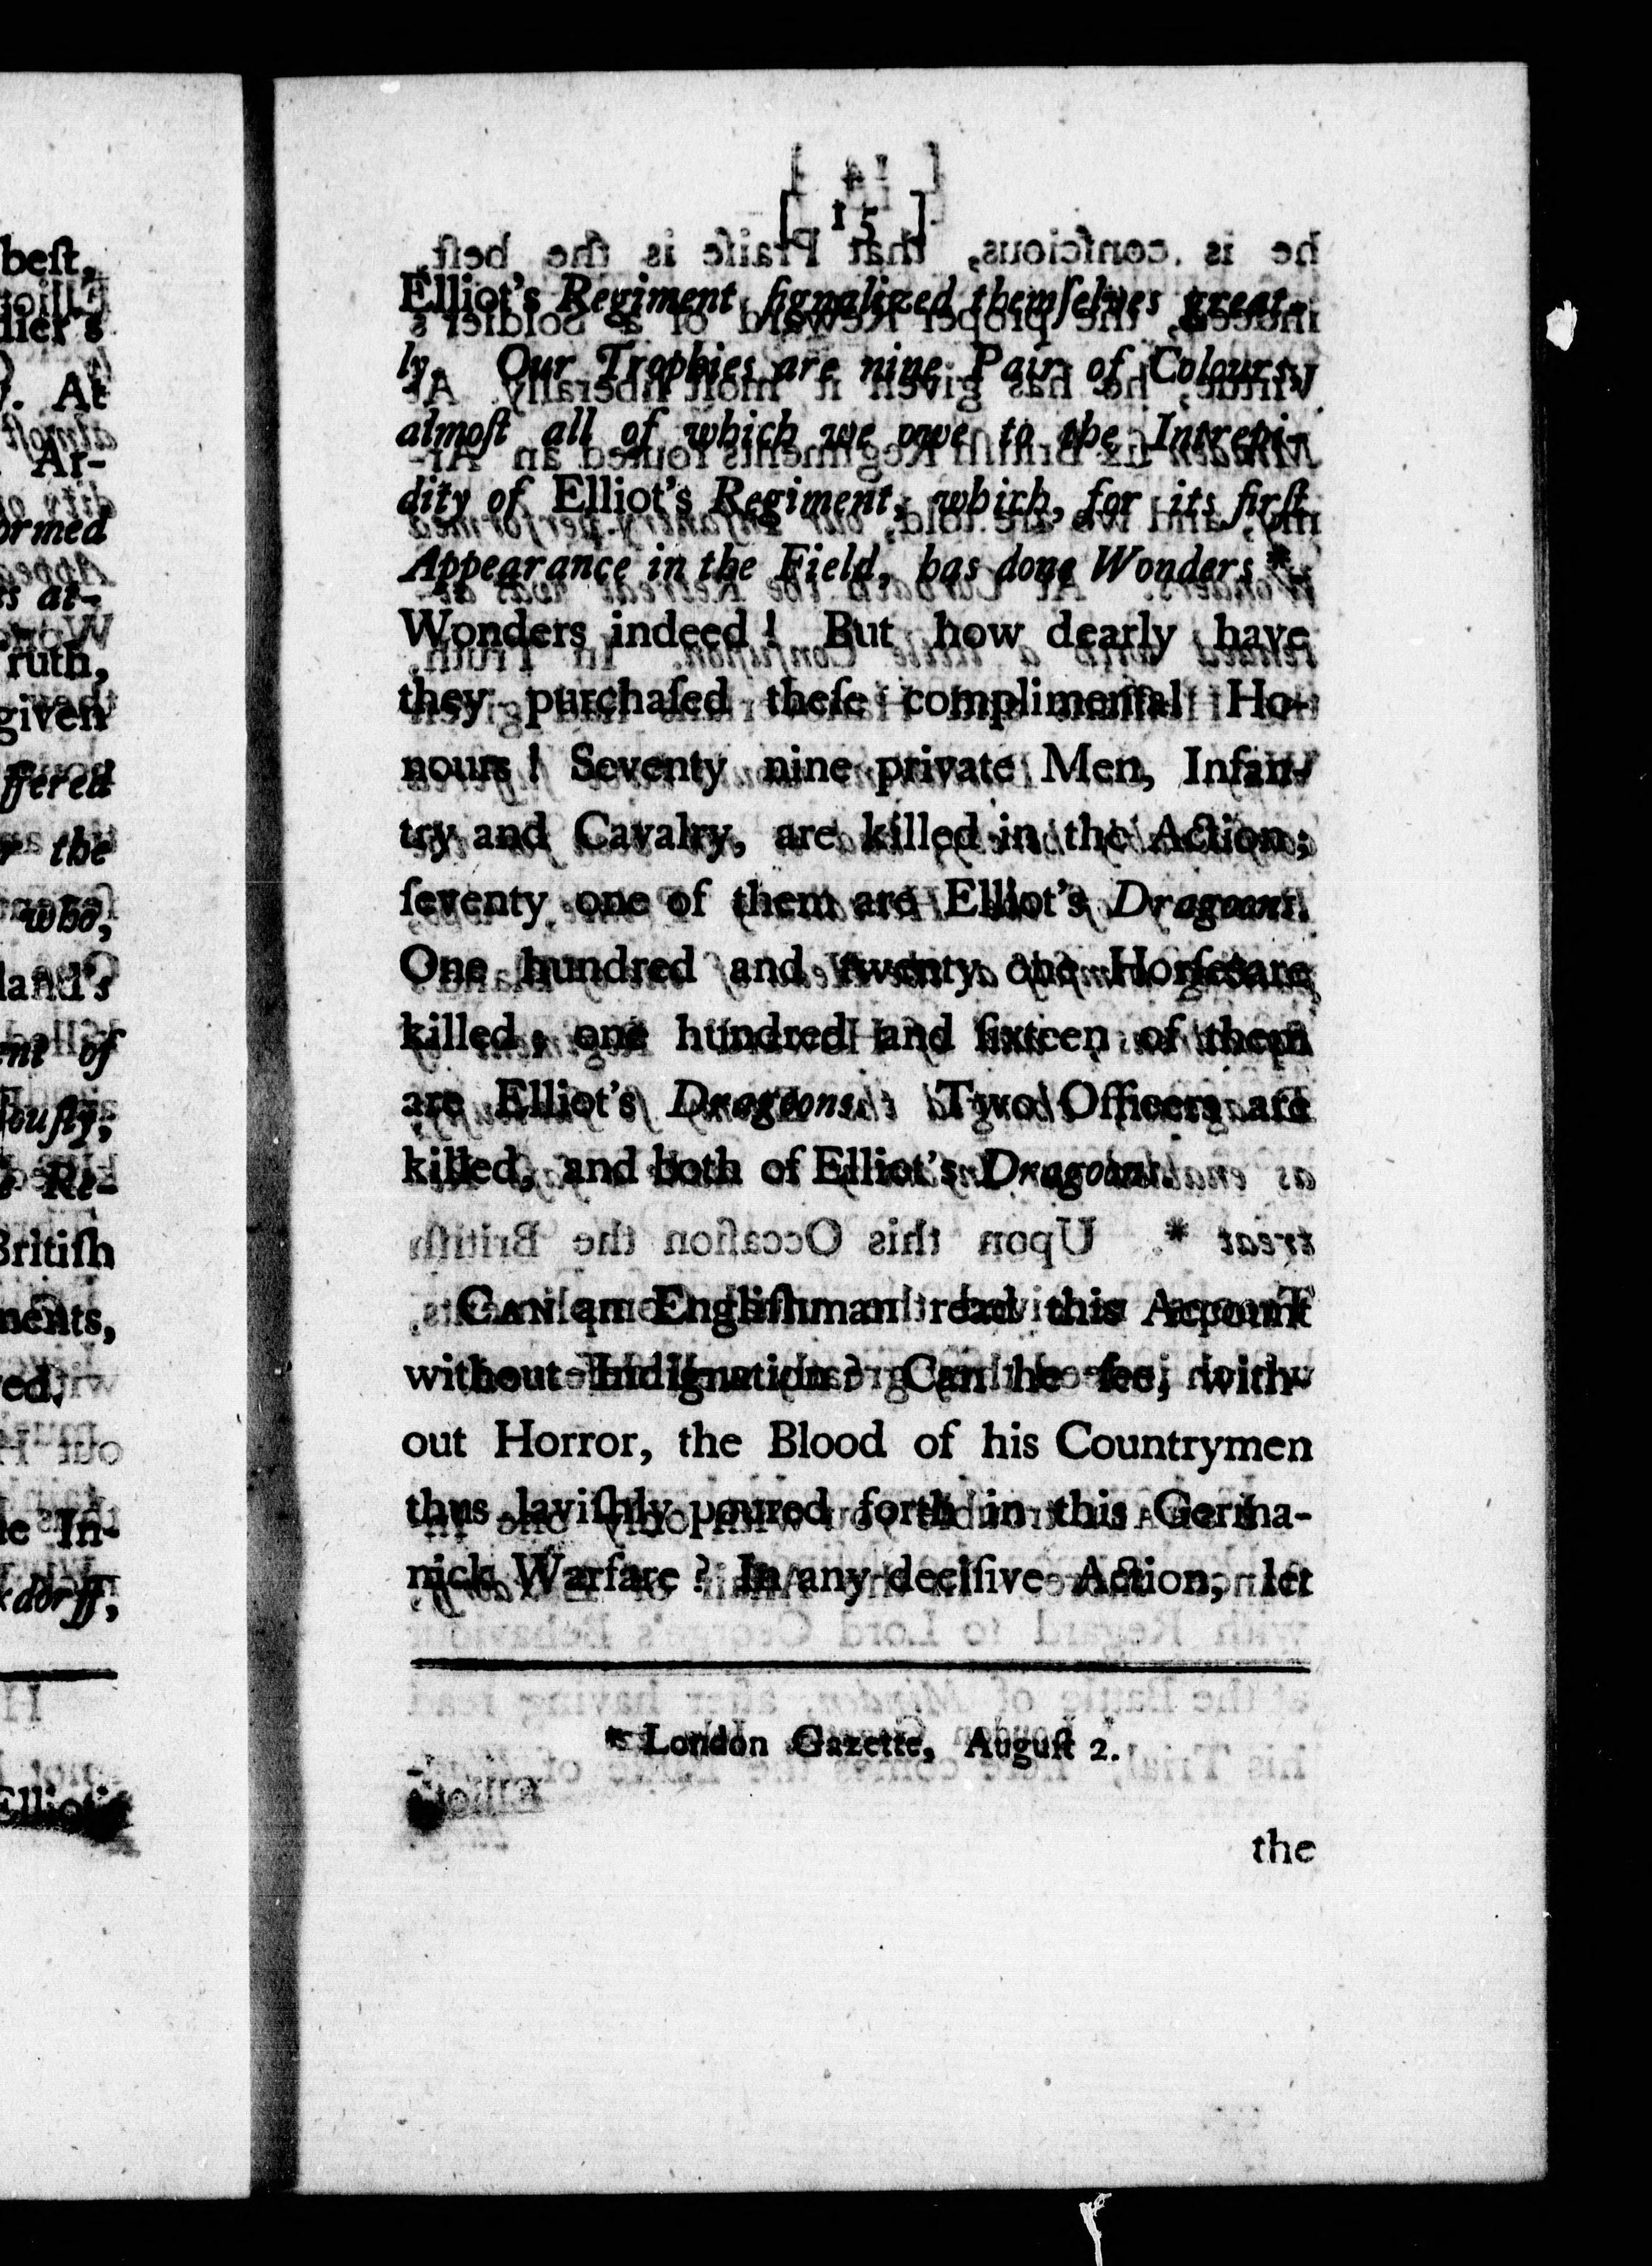 beſt,
dier's
y. At
Ar-
ormed
s at-
ruth,
given
ffered
r the
who,
land's
ent of
ouſly;
e Re-
Britiſh
ments,
ed,
le In-
dorff,
Elliot's
[ 15 ]
Elliot's Regiment ſignalized themſelves great-
ly. Our Trophies are nine Pair of Colours,
almoſt all of which we owe to the Intrepi-
dity of Elliot's Regiment, which, for its firſt
Appearance in the Field, has done Wonders *.
Wonders indeed! But how dearly have
they purchaſed theſe complimental Ho-
nours! Seventy nine private Men, Infan-
try and Cavalry, are killed in the Action;
ſeventy one of them are Elliot's Dragoons.
One hundred and twenty one Horſes are
killed; one hundred and ſixteen of them
are Elliot's Dragoons. Two Officers are
killed, and both of Elliot's Dragoons.
CAN an Engliſhman read this Account
without Indignation? Can he ſee, with-
out Horror, the Blood of his Countrymen
thus laviſhly poured forth in this Germa-
nick Warfare? In any deciſive Action, let
* London Gazette, Auguſt 2.
the